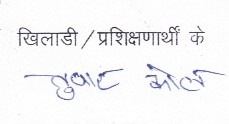 खिलाडी / प्रशिक्षणार्थी के
तुषार कोल